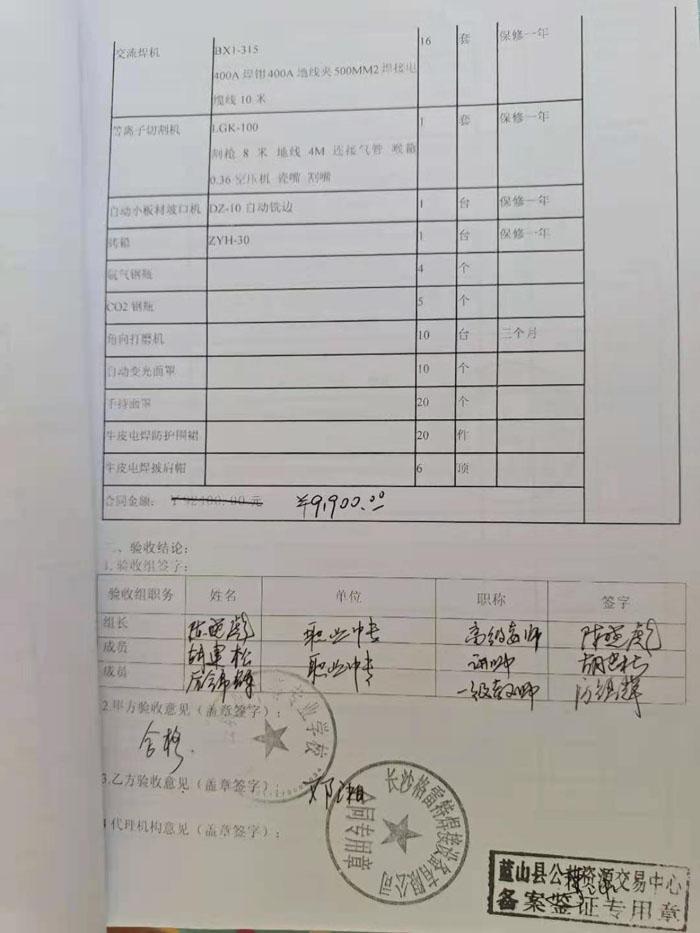 交流焊机 BX1-315 16 套 保修一年
400A 焊钳 400A 地线夹 500MM2 焊接电
缆线 10 米
等离子切割机 LGK-100 1 套 保修一年
割枪 8 米 地线 4M 连接气管 喉箍
0.36 空压机 瓷嘴 割嘴
自动小板材坡口机 DZ-10 自动铣边 1 台 保修一年
烤箱 ZYH-30 1 台 保修一年
氩气钢瓶 4 个
CO2 钢瓶 5 个
角向打磨机 10 台 三个月
自动变光面罩 10 个
手持面罩 20 个
牛皮电焊防护围裙 20 件
牛皮电焊披肩帽 6 顶
合同金额: ¥9,900.00
二、验收结论:
1.验收组签字:
验收组职务 姓名 单位 职称 签字
组长 职业中专 高级教师
成员 职业中专 讲师
成员 一级教师
2.甲方验收意见（盖章签字）:
合格.
业学校
3.乙方验收意见（盖章签字）: 邓湘
长沙格雷特焊接设备有限公司
合同专用章
4 代理机构意见（盖章签字）:
蓝山县公共资源交易中心
备案鉴证专用章